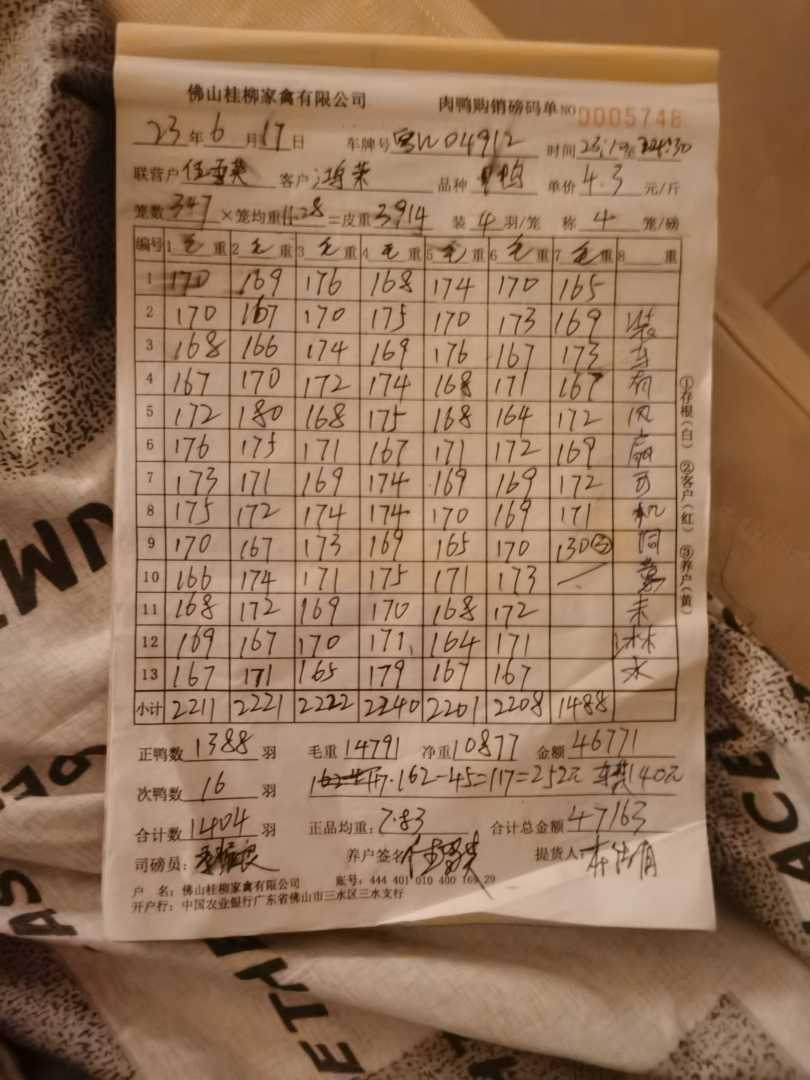 佛山桂柳家禽有限公司 肉鸭购销磅码单 NO 0005748
23年6月17日 车牌号 W04912 时间 23:10至24:30
联营户 伍雪英 客户 鸿荣 品种 鸭 单价 4.3 元/斤
笼数 347 ×笼均重 11.28 =皮重 3914 装 4 羽/笼 称 4 笼/磅
编号 1 毛重 2 毛重 3 毛重 4 毛重 5 毛重 6 毛重 7 毛重 8 重
1 170 169 176 168 174 170 165
2 170 167 170 175 170 173 169 装
3 168 166 174 169 176 167 173 车
4 167 170 172 174 168 171 167 有
5 172 180 168 175 168 164 172 风
6 176 175 171 167 171 172 169 扇
7 173 171 169 174 169 169 172 司
8 175 172 174 174 170 169 171 机
9 170 167 173 169 165 170 130③ 同
10 166 174 171 175 171 173 意
11 168 172 169 170 168 172 未
12 169 167 170 171 164 171 淋
13 167 171 165 179 167 167 水
小计 2211 2221 2222 2240 2201 2208 1488
①存根(白) ②客户(红) ③养户(黄)
正鸭数 1388 羽 毛重 14791 净重 10877 金额 46771
次鸭数 16 羽 162-45=117=252元 140元
合计数 1404 羽 正品均重: 7.83 合计总金额 47163
司磅员: 养户签名 伍雪英 提货人:
户 名: 佛山桂柳家禽有限公司 账号: 444 401 010 400 169 29
开户行: 中国农业银行广东省佛山市三水区三水支行